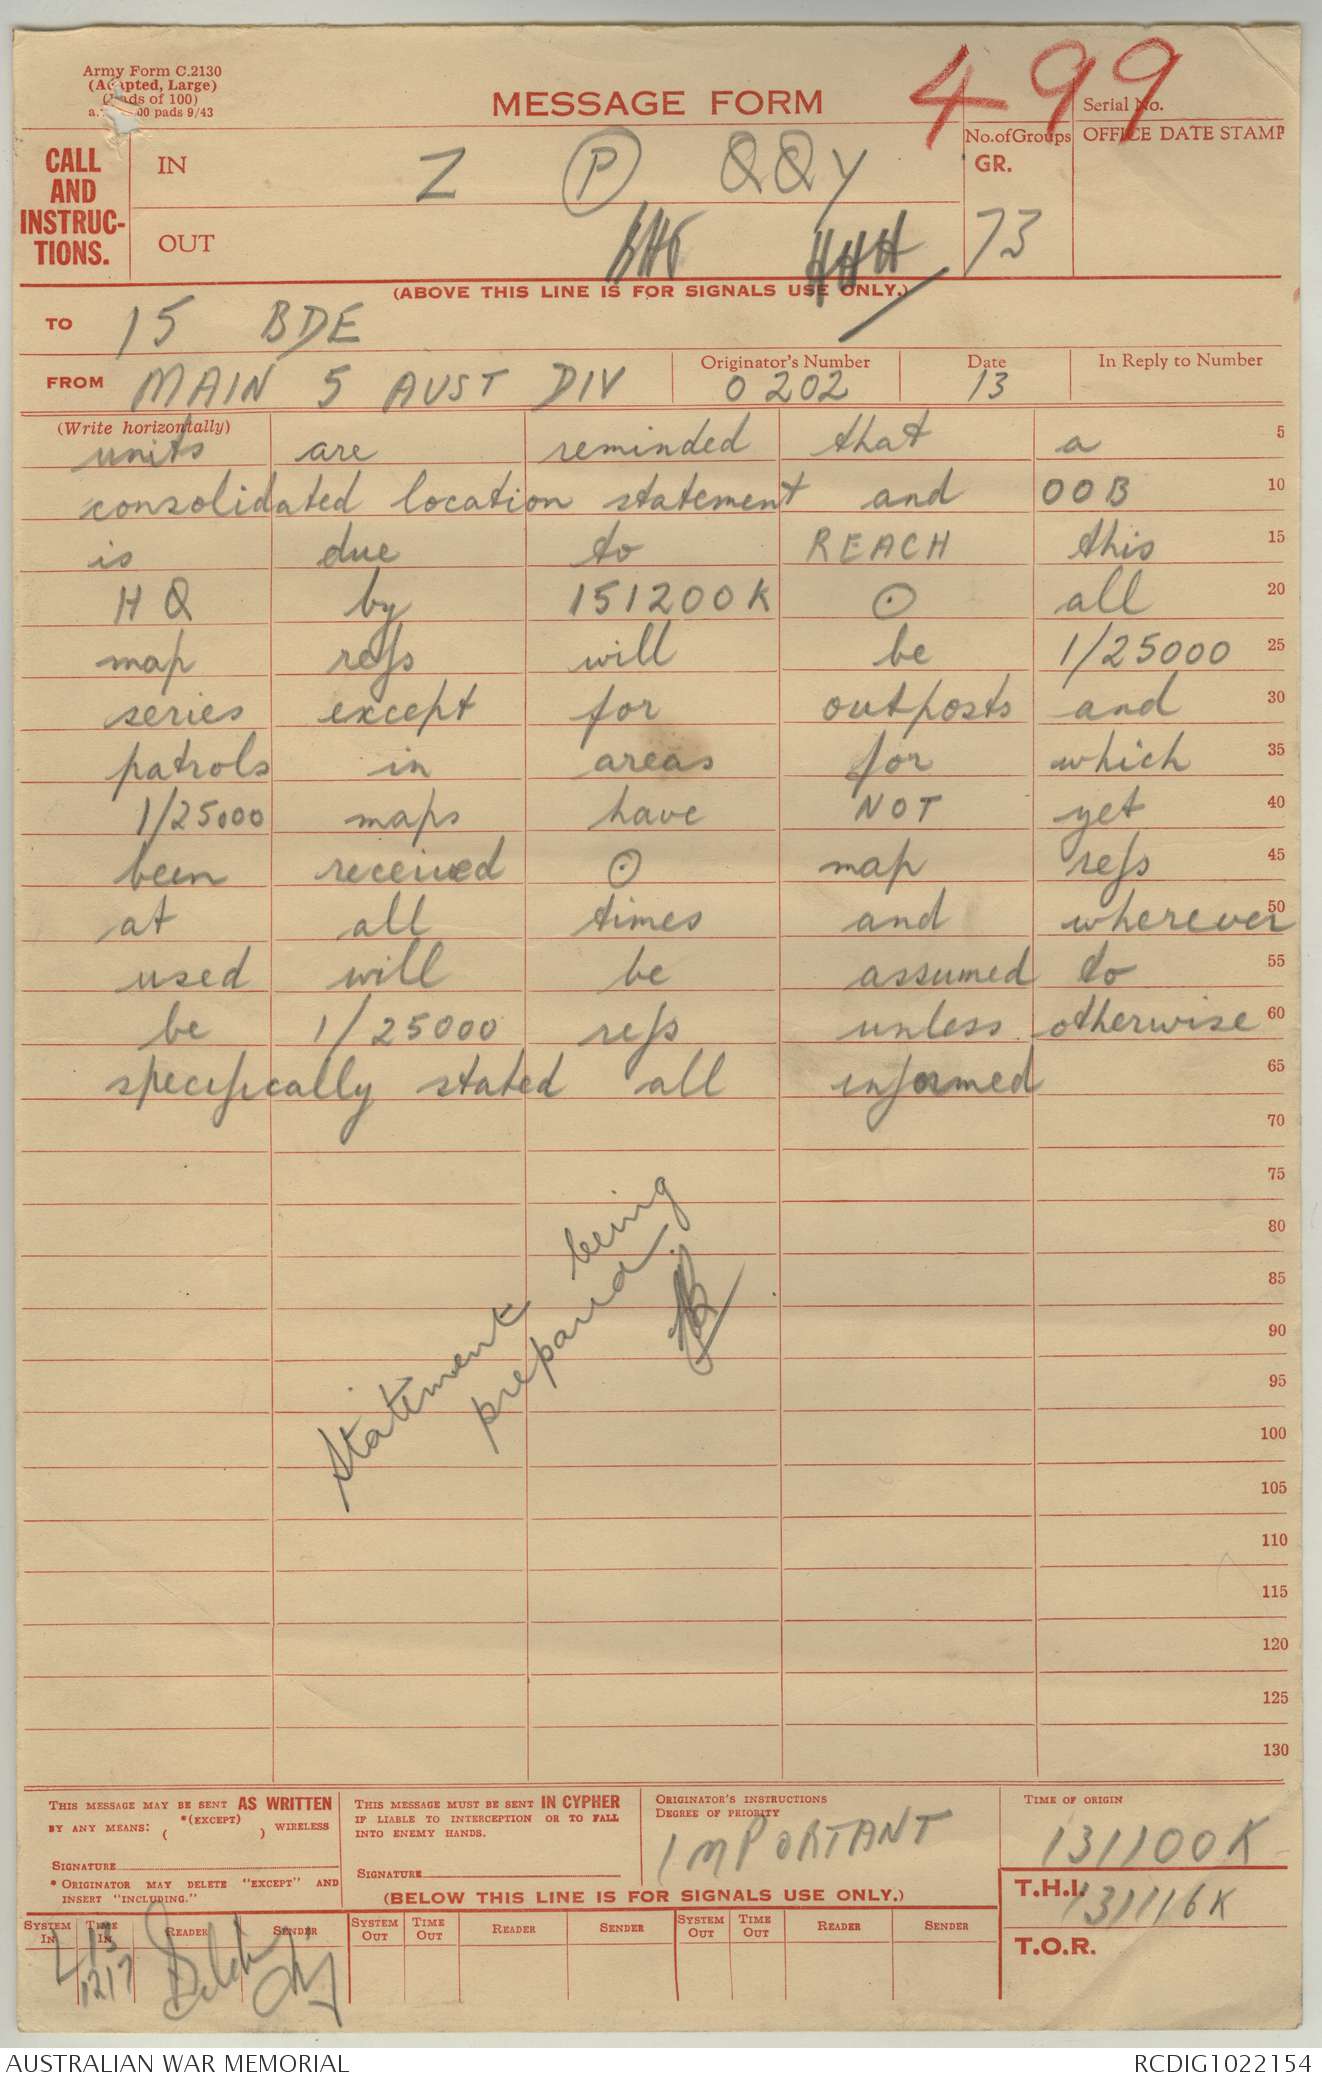 Army Form C.2130
(Adapted, Large)
(Pads of 100)
00 pads 9/43
MESSAGE FORM
499
Serial No.
CALL AND INSTRUC-TIONS.
IN
Z (P) QQY
No. of Groups
GR.
73
OFFICE DATE STAMP
OUT
(ABOVE THIS LINE IS FOR SIGNALS USE ONLY.)
TO 15 BDE
FROM MAIN 5 AUST DIV
Originator's Number
0202
Date
13
In Reply to Number
(Write horizontally)
units are reminded that a 5
consolidated location statement and OOB 10
is due to REACH this 15
HQ by 151200K ⊙ all 20
map refs will be 1/25000 25
series except for outposts and 30
patrols in areas for which 35
1/25000 maps have NOT yet 40
been received ⊙ map refs 45
at all times and wherever 50
used will be assumed to 55
be 1/25000 refs unless otherwise 60
specifically stated all informed 65
70
75
80
85
90
95
100
105
110
115
120
125
130
Statement being
prepared.
THIS MESSAGE MAY BE SENT AS WRITTEN
BY ANY MEANS: *(EXCEPT) ( ) WIRELESS
SIGNATURE
* ORIGINATOR MAY DELETE "EXCEPT" AND
INSERT "INCLUDING."
THIS MESSAGE MUST BE SENT IN CYPHER
IF LIABLE TO INTERCEPTION OR TO FALL
INTO ENEMY HANDS.
SIGNATURE
ORIGINATOR'S INSTRUCTIONS
DEGREE OF PRIORITY
IMPORTANT
TIME OF ORIGIN
131100K
T.H.I.
131116K
T.O.R.
(BELOW THIS LINE IS FOR SIGNALS USE ONLY.)
SYSTEM IN TIME IN READER SENDER SYSTEM OUT TIME OUT READER SENDER SYSTEM OUT TIME OUT READER SENDER
L 13
1217
AUSTRALIAN WAR MEMORIAL
RCDIG1022154